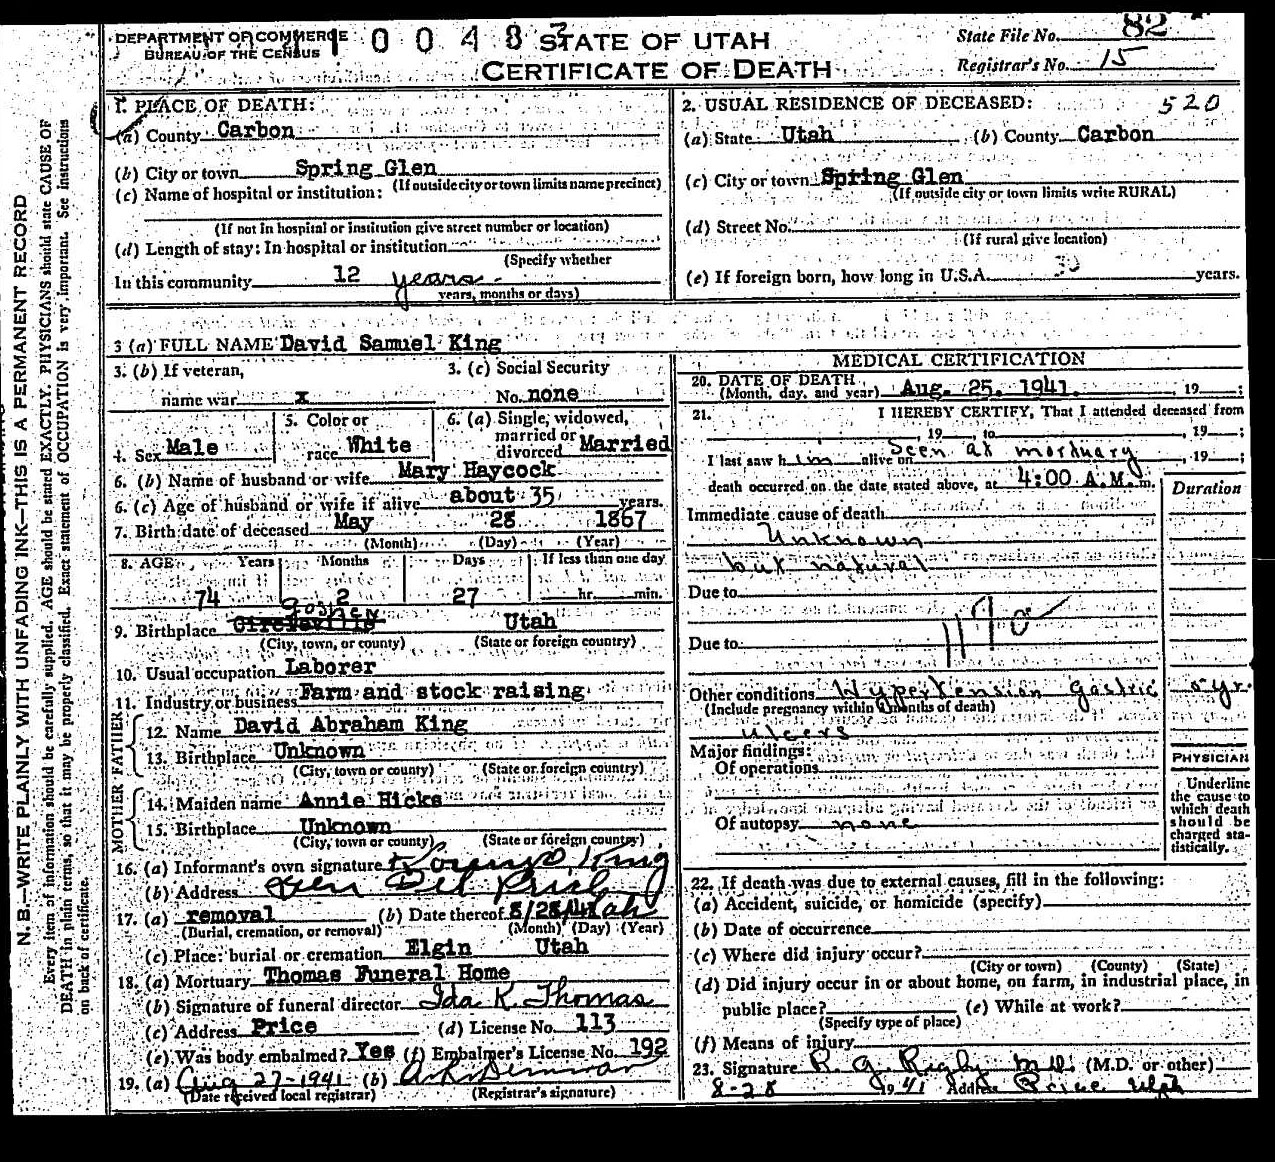 DEPARTMENT OF COMMERCE
BUREAU OF THE CENSUS
0 0 4 8
STATE OF UTAH
CERTIFICATE OF DEATH
State File No. 82
Registrar's No. 15
1. PLACE OF DEATH:
(a) County Carbon
(b) City or town Spring Glen
(If outside city or town limits name precinct)
(c) Name of hospital or institution:
(If not in hospital or institution give street number or location)
(d) Length of stay: In hospital or institution
(Specify whether
In this community 12 years
years, months or days)
2. USUAL RESIDENCE OF DECEASED: 520
(a) State Utah (b) County Carbon
(c) City or town Spring Glen
(If outside city or town limits write RURAL)
(d) Street No.
(If rural give location)
(e) If foreign born, how long in U.S.A. years.
3 (a) FULL NAME David Samuel King
3. (b) If veteran, 3. (c) Social Security
name war x No. none
4. Sex Male 5. Color or race White 6. (a) Single, widowed, married or divorced Married
6. (b) Name of husband or wife Mary Haycock
6. (c) Age of husband or wife if alive about 35 years.
7. Birth date of deceased May 28 1867
(Month) (Day) (Year)
8. AGE Years Months Days If less than one day
74 2 27 hr. min.
Goshen
9. Birthplace Circleville Utah
(City, town, or county) (State or foreign country)
10. Usual occupation Laborer
11. Industry or business Farm and stock raising
FATHER
12. Name David Abraham King
13. Birthplace Unknown
(City, town or county) (State or foreign country)
MOTHER
14. Maiden name Annie Hicks
15. Birthplace Unknown
(City, town or county) (State or foreign country)
16. (a) Informant's own signature Lorenzo King
(b) Address Gen Del Price Utah
17. (a) removal (b) Date thereof 8/28/41
(Burial, cremation, or removal) (Month) (Day) (Year)
(c) Place: burial or cremation Elgin Utah
18. (a) Mortuary Thomas Funeral Home
(b) Signature of funeral director Ida K. Thomas
(c) Address Price (d) License No. 113
(e) Was body embalmed? Yes (f) Embalmer's License No. 192
19. (a) Aug 27-1941 (b)
(Date received local registrar) (Registrar's signature)
MEDICAL CERTIFICATION
20. DATE OF DEATH
(Month, day, and year) Aug. 25, 1941. , 19 ;
21. I HEREBY CERTIFY, That I attended deceased from
, 19 to , 19 ;
I last saw him alive on Seen at mortuary , 19 ;
death occurred on the date stated above, at 4:00 A.M. m.
Duration
Immediate cause of death
Unknown
but natural
Due to
Due to
Other conditions Hypertension Gastric 5 yr.
(Include pregnancy within months of death)
ulcers
Major findings:
Of operations
Of autopsy none
PHYSICIAN
Underline
the cause to
which death
should be
charged sta-
tistically.
22. If death was due to external causes, fill in the following:
(a) Accident, suicide, or homicide (specify)
(b) Date of occurrence
(c) Where did injury occur?
(City or town) (County) (State)
(d) Did injury occur in or about home, on farm, in industrial place, in
public place? (e) While at work?
(Specify type of place)
(f) Means of injury
23. Signature R. G. Rigby M.D. (M.D. or other)
8-28 1941 Address Price Utah
N. B.—WRITE PLAINLY WITH UNFADING INK—THIS IS A PERMANENT RECORD
Every item of information should be carefully supplied. AGE should be stated EXACTLY. PHYSICIANS should state CAUSE OF
DEATH in plain terms, so that it may be properly classified. Exact statement of OCCUPATION is very important. See instructions
on back of certificate.